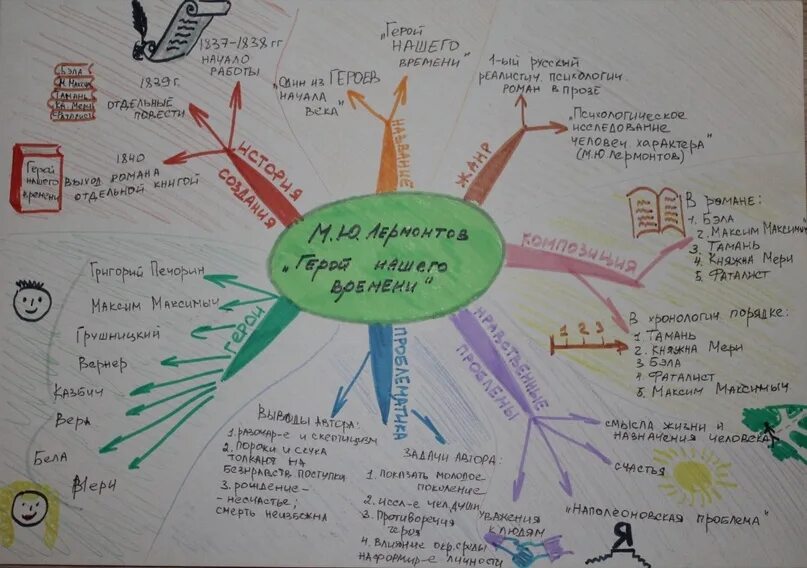 М.Ю.Лермонтов
„Герой нашего
времени"
ИСТОРИЯ
СОЗДАНИЯ
1837-1838 гг
НАЧАЛО
РАБОТЫ
1839г.
ОТДЕЛЬНЫЕ
ПОВЕСТИ
БЭЛА
М.Макси
ТАМАНЬ
Кн. Мери
Фаталист
1840
ВЫХОД РОМАНА
ОТДЕЛЬНОЙ КНИГОЙ
Герой
нашего
времени
НАЗВАНИЕ
„Один из ГЕРОЕВ
НАЧАЛА
ВЕКА"
„Герой
НАШЕГО
ВРЕМЕНИ"
ЖАНР
1-ый русский
реалистич. психологич.
роман в прозе
„Психологическое
исследование
человеч. характера"
(М.Ю Лермонтов)
КОМПОЗИЦИЯ
В романе:
1. Бэла
2. Максим Максимыч
3. Тамань
4. Княжна Мери
5. Фаталист
1 2 3
В хронологич. порядке:
1. Тамань
2. Княжна Мери
3. Бэла
4. Фаталист
5. Максим Максимыч
НРАВСТВЕННЫЕ
ПРОБЛЕМЫ
смысла жизни и
назначения человека
счастья
„Наполеоновская проблема"
Я
Уважения
к людям
ПРОБЛЕМАТИКА
Выводы автора:
1. разочар-е и скептицизм
2. пороки и скука
толкают на
безнравств поступки
3. рождение -
- несчастье;
смерть неизбежна
Задачи автора:
1. показать молодое
поколение
2. иссл-е чел.души
3. Противоречия
героя
4. Влияние окр. среды
на формир-е личности
ГЕРОИ
Григорий Печорин
Максим Максимыч
Грушницкий
Вернер
Казбич
Вера
Бела
Мери